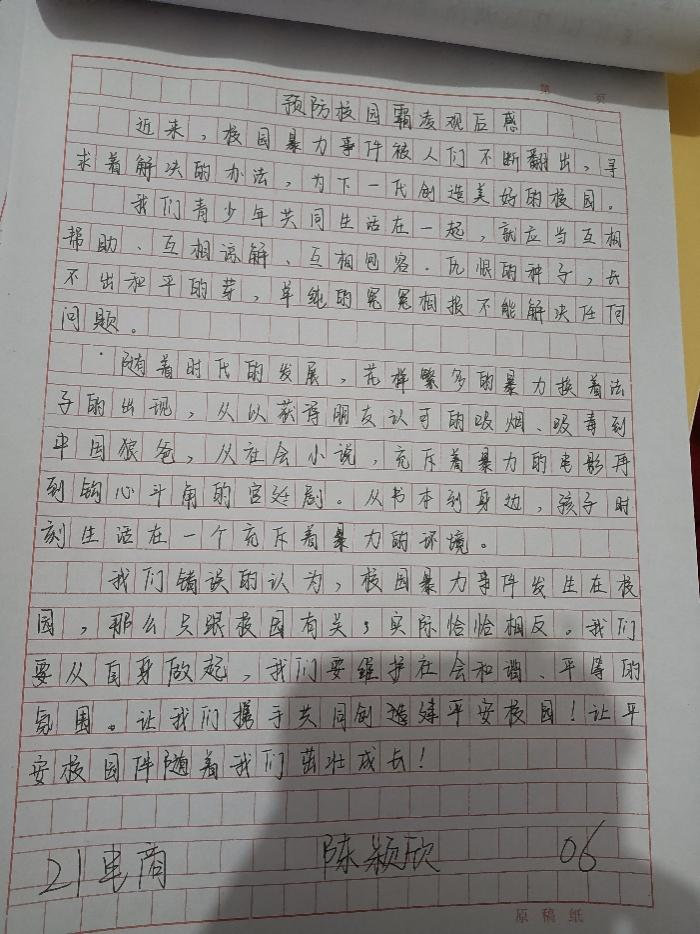 第 页
预防校园霸凌观后感
近来，校园暴力事件被人们不断翻出，寻
求着解决的办法，为下一代创造美好的校园。
我们青少年共同生活在一起，就应当互相
帮助、互相谅解、互相包容．仇恨的种子，长
不出和平的芽，单纯的冤冤相报不能解决任何
问题。
随着时代的发展，花样繁多的暴力换着法
子的出现，从以获得朋友认可的吸烟、吸毒到
中国狼爸，从社会小说，充斥着暴力的电影再
到钩心斗角的宫廷剧。从书本到身边，孩子时
刻生活在一个充斥着暴力的环境。
我们错误的认为，校园暴力事件发生在校
园，那么只跟校园有关；实际恰恰相反。我们
要从自身做起，我们要维护社会和谐、平等的
氛围。让我们携手共同创造建平安校园！让平
安校园伴随着我们茁壮成长！
21电商 陈颖欣 06
原稿纸